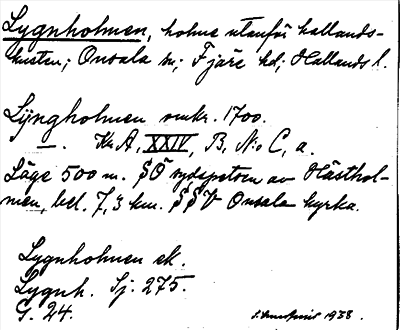 Lygnholmen, holme utanför hallands-
kusten; Onsala sn; Fjäre hd; Hallands l.
Lÿngholmen omkr. 1700.
—. Kr. A, XXIV, B, N:o C, a.
Läge 500 m. SÖ sydspetsen av Hästhol-
men, bel. 7,3 km. SSV Onsala kyrka.
Lygnholmen ek.
Lygnh. Sj. 275.
G. 24.
1938.